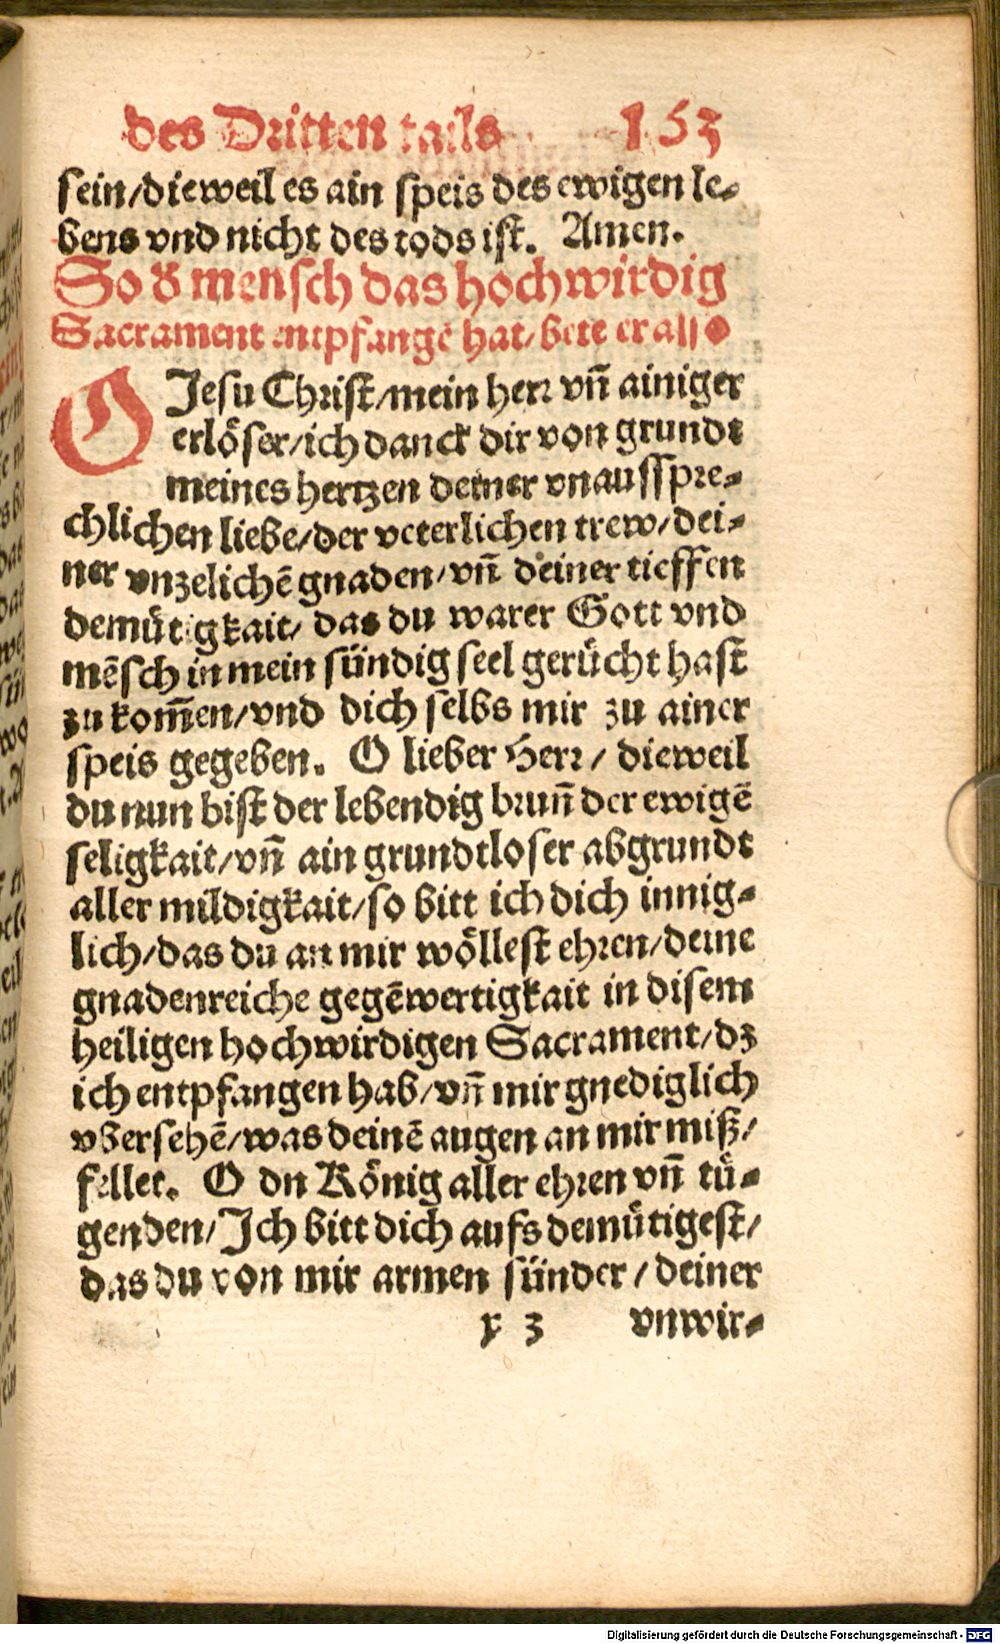 des Dritten tails 153
sein/dieweil es ain speis des ewigen le-
bens vnd nicht des tods ist. Amen.
So d̕ mensch das hochwirdig
Sacrament entpfangē hat/bete er also
O Jesu Christ/mein herr vn̄ ainiger
erlöser/ich danck dir von grundt
meines hertzen deiner vnausspre-
chlichen liebe/der veterlichen trew/dei-
ner vnzelichē gnaden/vn̄ deiner tieffen
demütigkait/das du warer Gott vnd
mēsch in mein sündig seel gerücht hast
zu kom̄en/vnd dich selbs mir zu ainer
speis gegeben. O lieber Herr/dieweil
du nun bist der lebendig brun̄ der ewigē
seligkait/vn̄ ain grundtloser abgrundt
aller mildigkait/so bitt ich dich innig-
lich/das du an mir wöllest ehren/deine
gnadenreiche gegēwertigkait in disem
heiligen hochwirdigen Sacrament/dz
ich entpfangen hab/vn̄ mir gnediglich
vbersehē/was deinē augen an mir miß/
fellet. O dn König aller ehren vn̄ tü-
genden/Jch bitt dich aufs demütigest/
das du von mir armen sünder/deiner
x 3 vnwir-
Digitalisierung gefördert durch die Deutsche Forschungsgemeinschaft - DFG